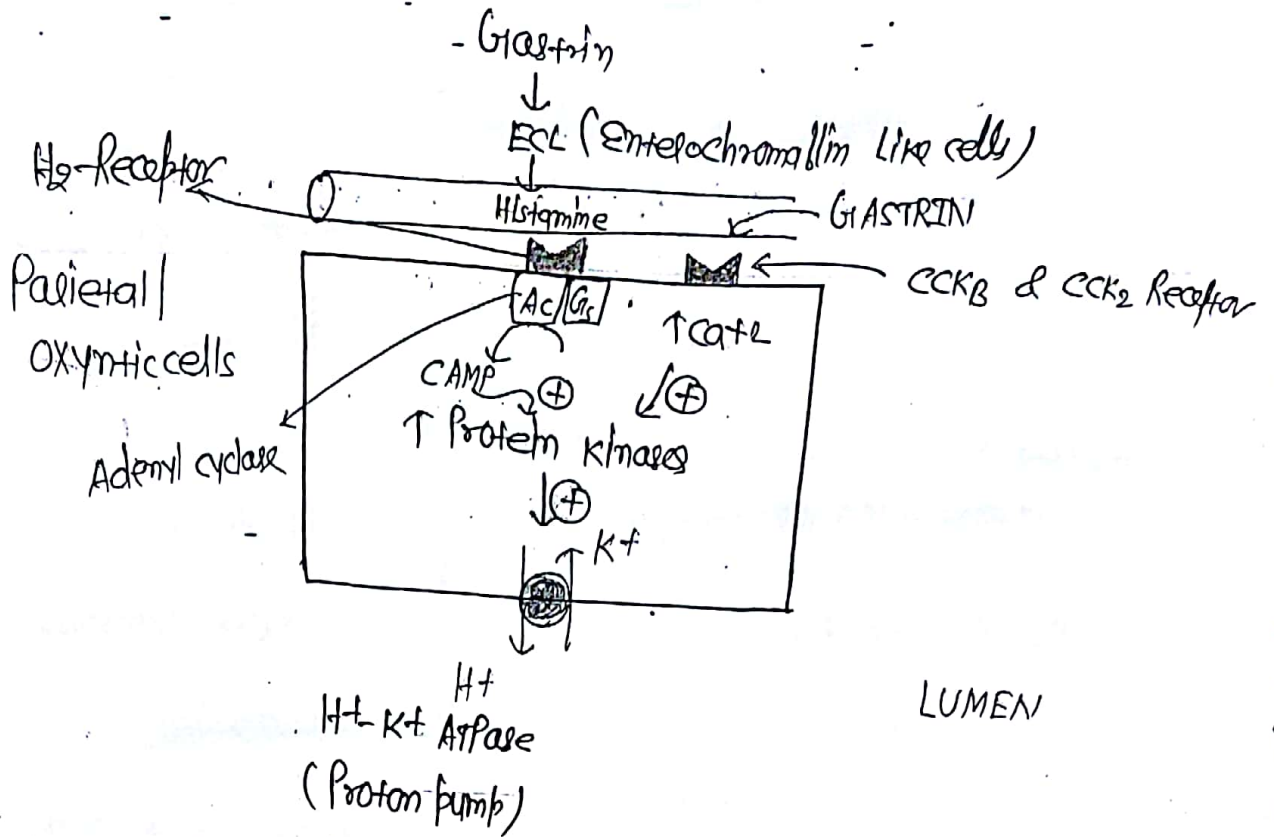 Gastrin
ECL (Enterochromaffin Like cells)
H2-Receptor
Histamine
GASTRIN
Parietal /
oxyntic cells
CCKB & CCK2 Receptor
AC Gs
↑ Ca+2
CAMP
+
+
↑ Protein kinases
Adenyl cyclase
+
K+
H+
H+-K+ ATPase
(Proton pump)
LUMEN